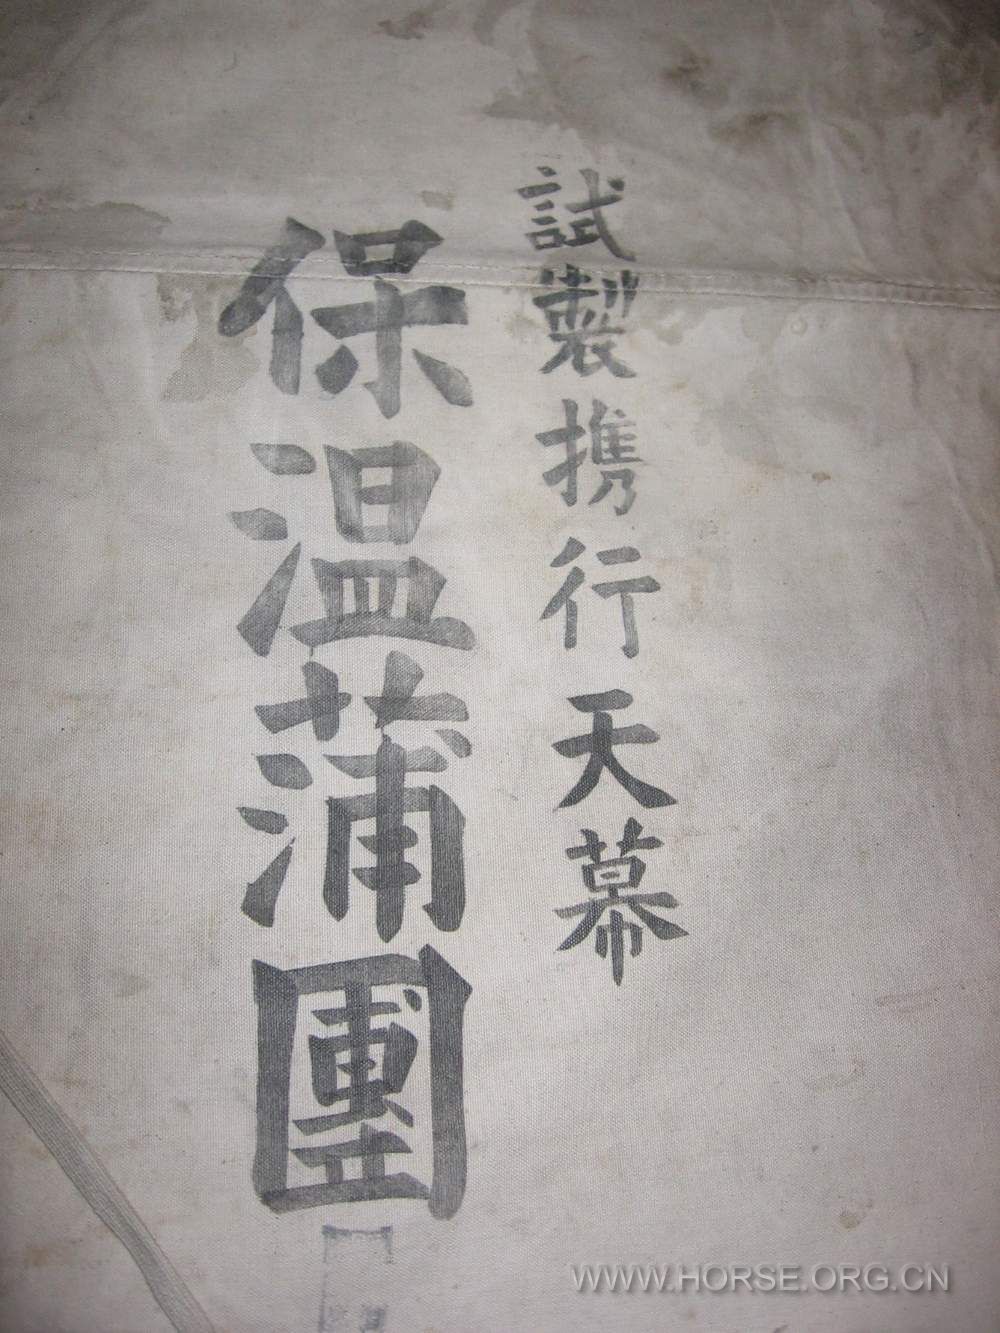 試製携行天幕
保温蒲團
WWW.HORSE.ORG.CN